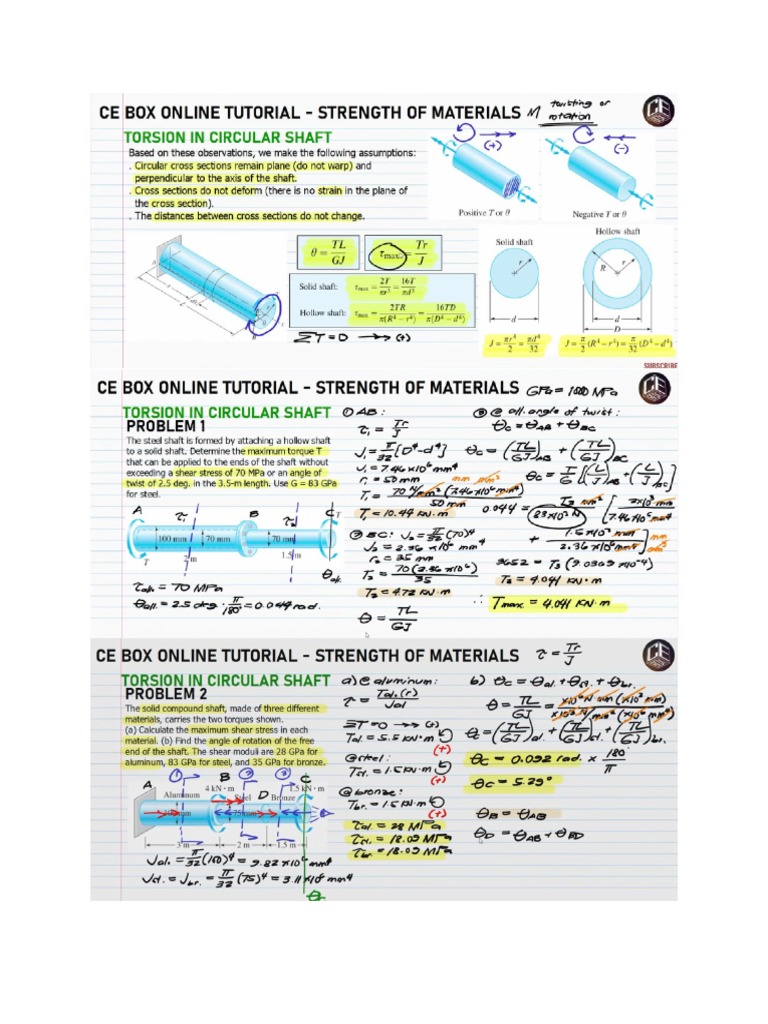 CE BOX ONLINE TUTORIAL - STRENGTH OF MATERIALS
twisting or
rotation
CE
TORSION IN CIRCULAR SHAFT
Based on these observations, we make the following assumptions:
. Circular cross sections remain plane (do not warp) and
perpendicular to the axis of the shaft.
. Cross sections do not deform (there is no strain in the plane of
the cross section).
. The distances between cross sections do not change.
(+)
(-)
Positive T or θ
Negative T or θ
Hollow shaft
Solid shaft
θ = TL/GJ
τmax = Tr/J
Solid shaft: τmax = 2T/πr³ = 16T/πd³
Hollow shaft: τmax = 2TR/π(R⁴ − r⁴) = 16TD/π(D⁴ − d⁴)
r
R
r
d
d
D
J = πr⁴/2 = πd⁴/32
J = π/2 (R⁴ − r⁴) = π/32 (D⁴ − d⁴)
ΣT=0 → (+)
SUBSCRIBE
CE BOX ONLINE TUTORIAL - STRENGTH OF MATERIALS
CE
TORSION IN CIRCULAR SHAFT
PROBLEM 1
The steel shaft is formed by attaching a hollow shaft
to a solid shaft. Determine the maximum torque T
that can be applied to the ends of the shaft without
exceeding a shear stress of 70 MPa or an angle of
twist of 2.5 deg. in the 3.5-m length. Use G = 83 GPa
for steel.
A
τ₁
B
C
T
100 mm
70 mm
70 mm
T
2 m
1.5 m
θall.
τall. = 70 MPa
θall. = 2.5 deg · π/180° = 0.044 rad.
① AB:
τ₁ = Tr/J
J₁ = π/32 [D⁴-d⁴]
J₁ = 7.46x10⁶ mm⁴
r₁ = 50 mm
T₁ = 70 N/mm² (7.46x10⁶ mm⁴)/50 mm
T₁ = 10.44 KN·m
② BC: J₂ = π/32 (70)⁴
J₂ = 2.36 x10⁶ mm⁴
r₂ = 35 mm
T₂ = 70 (2.36 x10⁶)/35
T₂ = 4.72 KN·m
θ = TL/GJ
③ @ all. angle of twist:
θC = θAB + θBC
θC = (TL/GJ)AB + (TL/GJ)BC
θC = T/G [(L/J)AB + (L/J)BC]
3652 = T₃ (9.0369 x10⁻⁴)
T₃ = 4.041 KN·m
∴ Tmax = 4.041 KN·m
CE BOX ONLINE TUTORIAL - STRENGTH OF MATERIALS
τ = Tr/J
CE
TORSION IN CIRCULAR SHAFT
PROBLEM 2
The solid compound shaft, made of three different
materials, carries the two torques shown.
(a) Calculate the maximum shear stress in each
material. (b) Find the angle of rotation of the free
end of the shaft. The shear moduli are 28 GPa for
aluminum, 83 GPa for steel, and 35 GPa for bronze.
A
①
B
②
③
C
4 kN·m
D
1.5 kN·m
Aluminum
Steel
Bronze
3 m
2 m
1.5 m
Jal. = π/32 (100)⁴ = 9.82 x10⁶ mm⁴
Jst. = Jbr. = π/32 (75)⁴ = 3.11 x10⁶ mm⁴
θ
a) @ aluminum:
τ = Tal.(r)/Jal
ΣT=0 → (+)
Tal. = 5.5 KN·m
(+)
@ steel:
Tst. = 1.5 KN·m
(+)
@ bronze:
Tbr. = 1.5 KN·m
(+)
τal. = 28 MPa
τst. = 18.09 MPa
τbr. = 18.09 MPa
b) θC = θal. + θst. + θbr.
θC = (TL/GJ)al. + (TL/GJ)st. + (TL/GJ)br.
θC = 0.092 rad. x 180°/π
θC = 5.29°
θB = θAB
θD = θAB + θBD